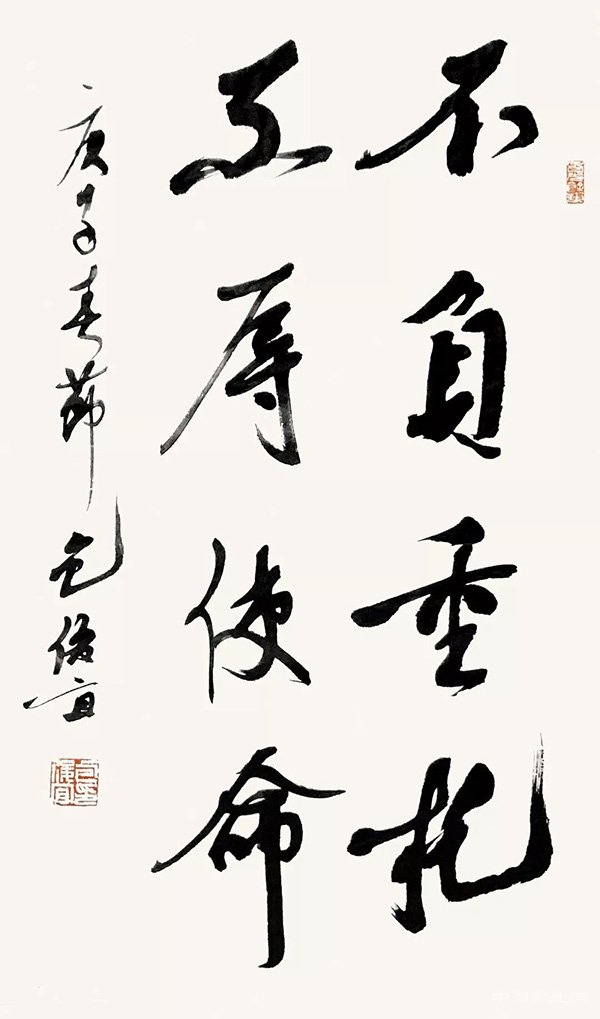 不负重托
不辱使命
庚子春节 包俊宜